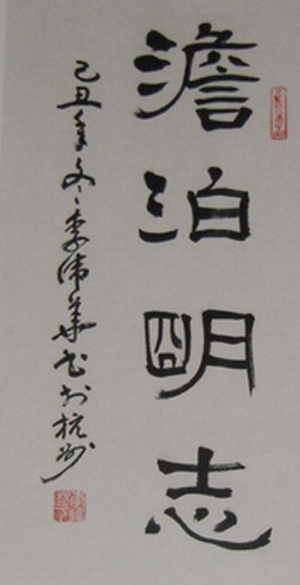 澹泊明志
己丑年冬李伟华书于杭州